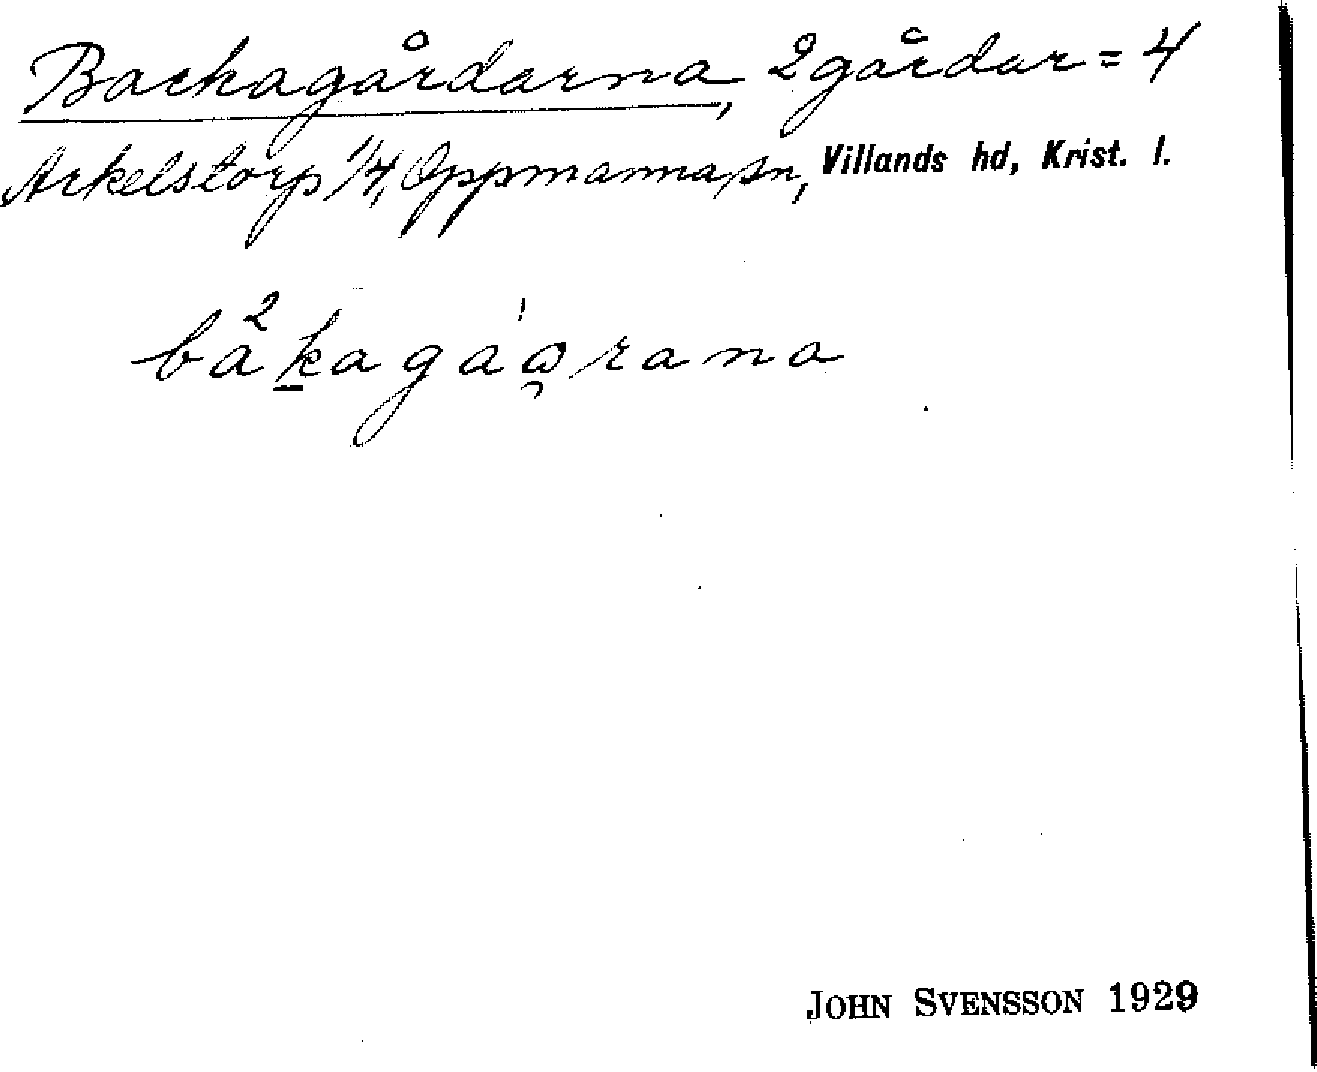 Backagårdarna, 2 gårdar = 4
Arkelstorp 1/4, Oppmanna sn, Villands hd, Krist. l.
bå²kagáɷrana
JOHN SVENSSON 1929